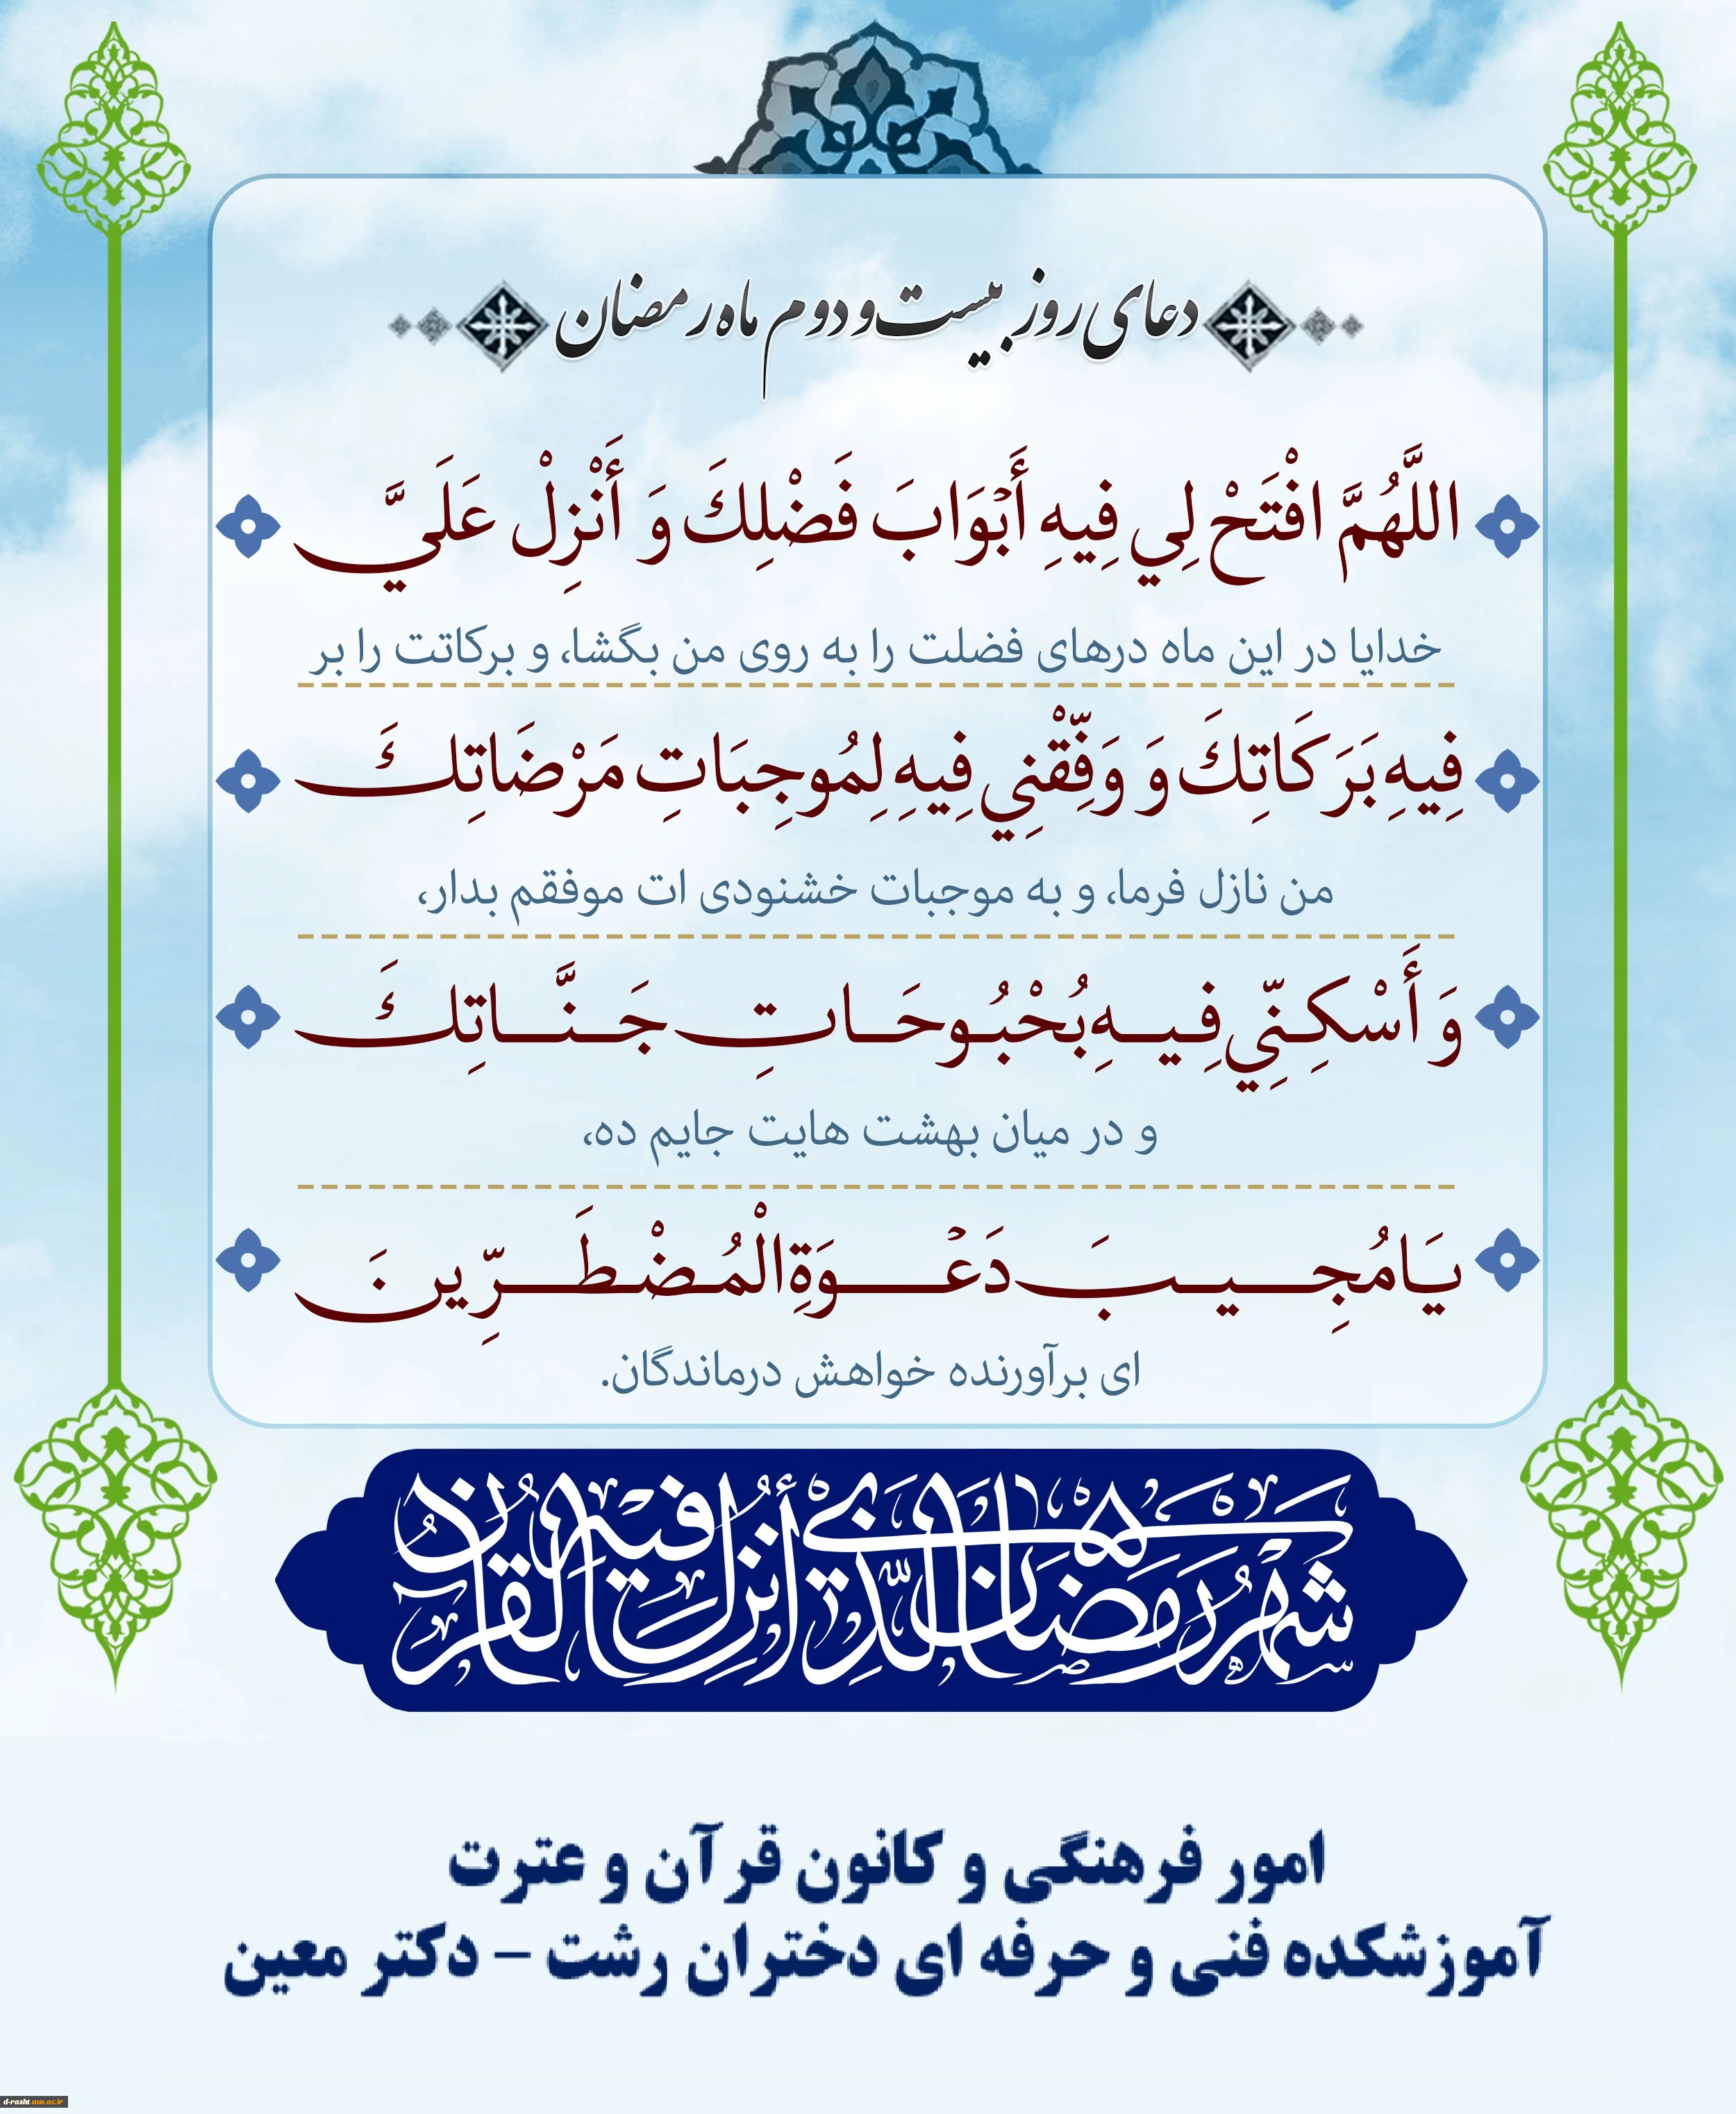 دعای روز بیست و دوم ماه رمضان
اللَّهُمَّ افْتَحْ لِي فِيهِ أَبْوَابَ فَضْلِكَ وَ أَنْزِلْ عَلَيَّ
خدایا در این ماه درهای فضلت را به روی من بگشا، و برکاتت را بر
فِيهِ بَرَكَاتِكَ وَ وَفِّقْنِي فِيهِ لِمُوجِبَاتِ مَرْضَاتِكَ
من نازل فرما، و به موجبات خشنودی ات موفقم بدار،
وَ أَسْكِنِّي فِيهِ بُحْبُوحَاتِ جَنَّاتِكَ
و در میان بهشت هایت جایم ده،
يَا مُجِيبَ دَعْوَةِ الْمُضْطَرِّينَ
ای برآورنده خواهش درماندگان.
شهر رمضان الذي أنزل فيه القرآن
امور فرهنگی و کانون قرآن و عترت
آموزشکده فنی و حرفه ای دختران رشت – دکتر معین
d-rasht.nus.ac.ir